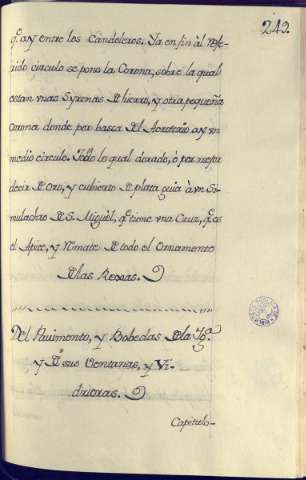 249.
q.e ay entre los Candeleros. Ya en fin al refe-
rido circulo se pone la Corona, sobre la qual
estan vnas Syrenas de hierro, y otra pequeña
Corona donde por basca del Acroterio ay vn
medio circulo. Todo lo qual dorado, ó por mejor
decir de Oro, y cubierto de plata guia à vn Si-
mulachro de S. Miguel, q.e tiene vna Cruz, q.e es
el Apice, y Rimate de todo el Ornamento
de las Rexas.
Del Pavimento, y Bobedas de la Ig.a
y de sus Ventanas, y Vi-
drieras.
Capitulo-